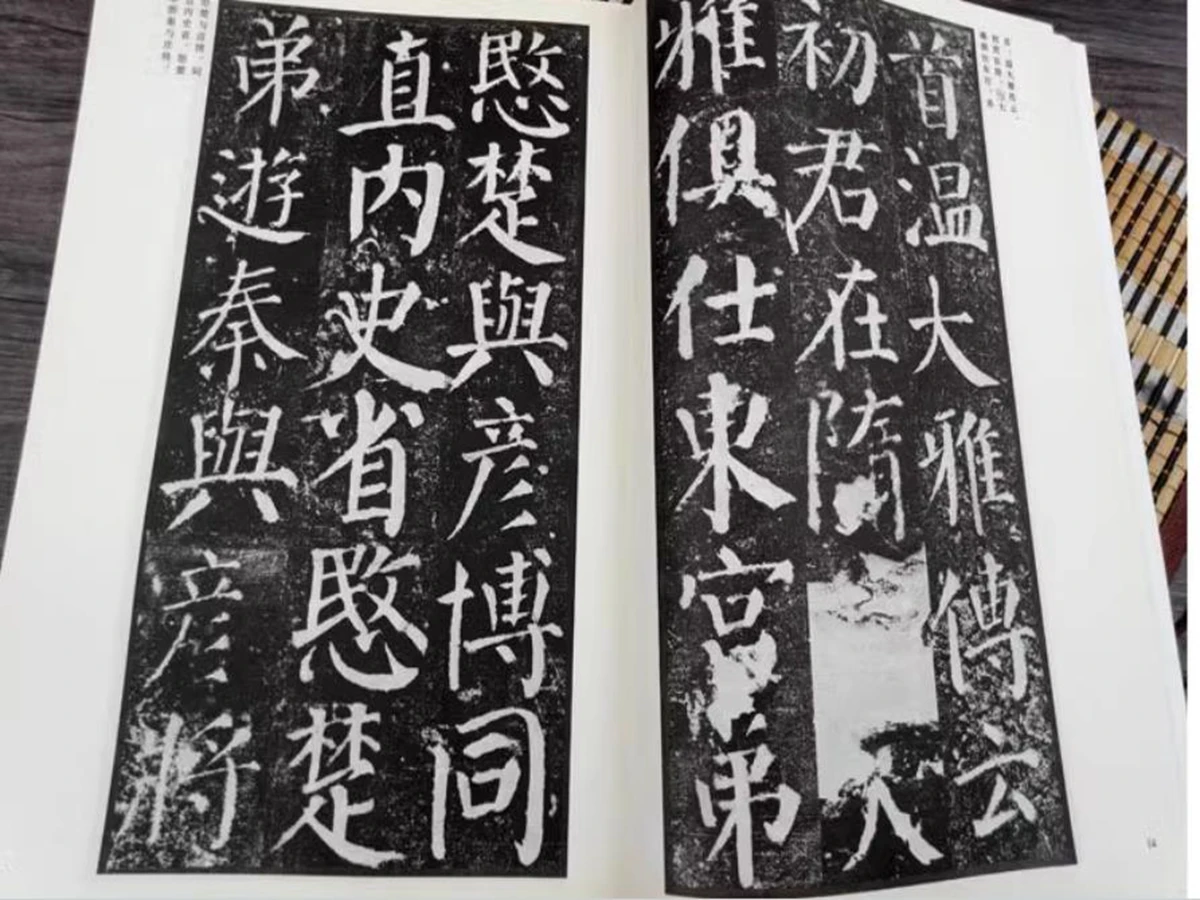 首温大雅傳云
初君在隋大
雅俱仕東宮弟
愍楚與彦博同
直内史省愍楚
弟遊秦與彦將